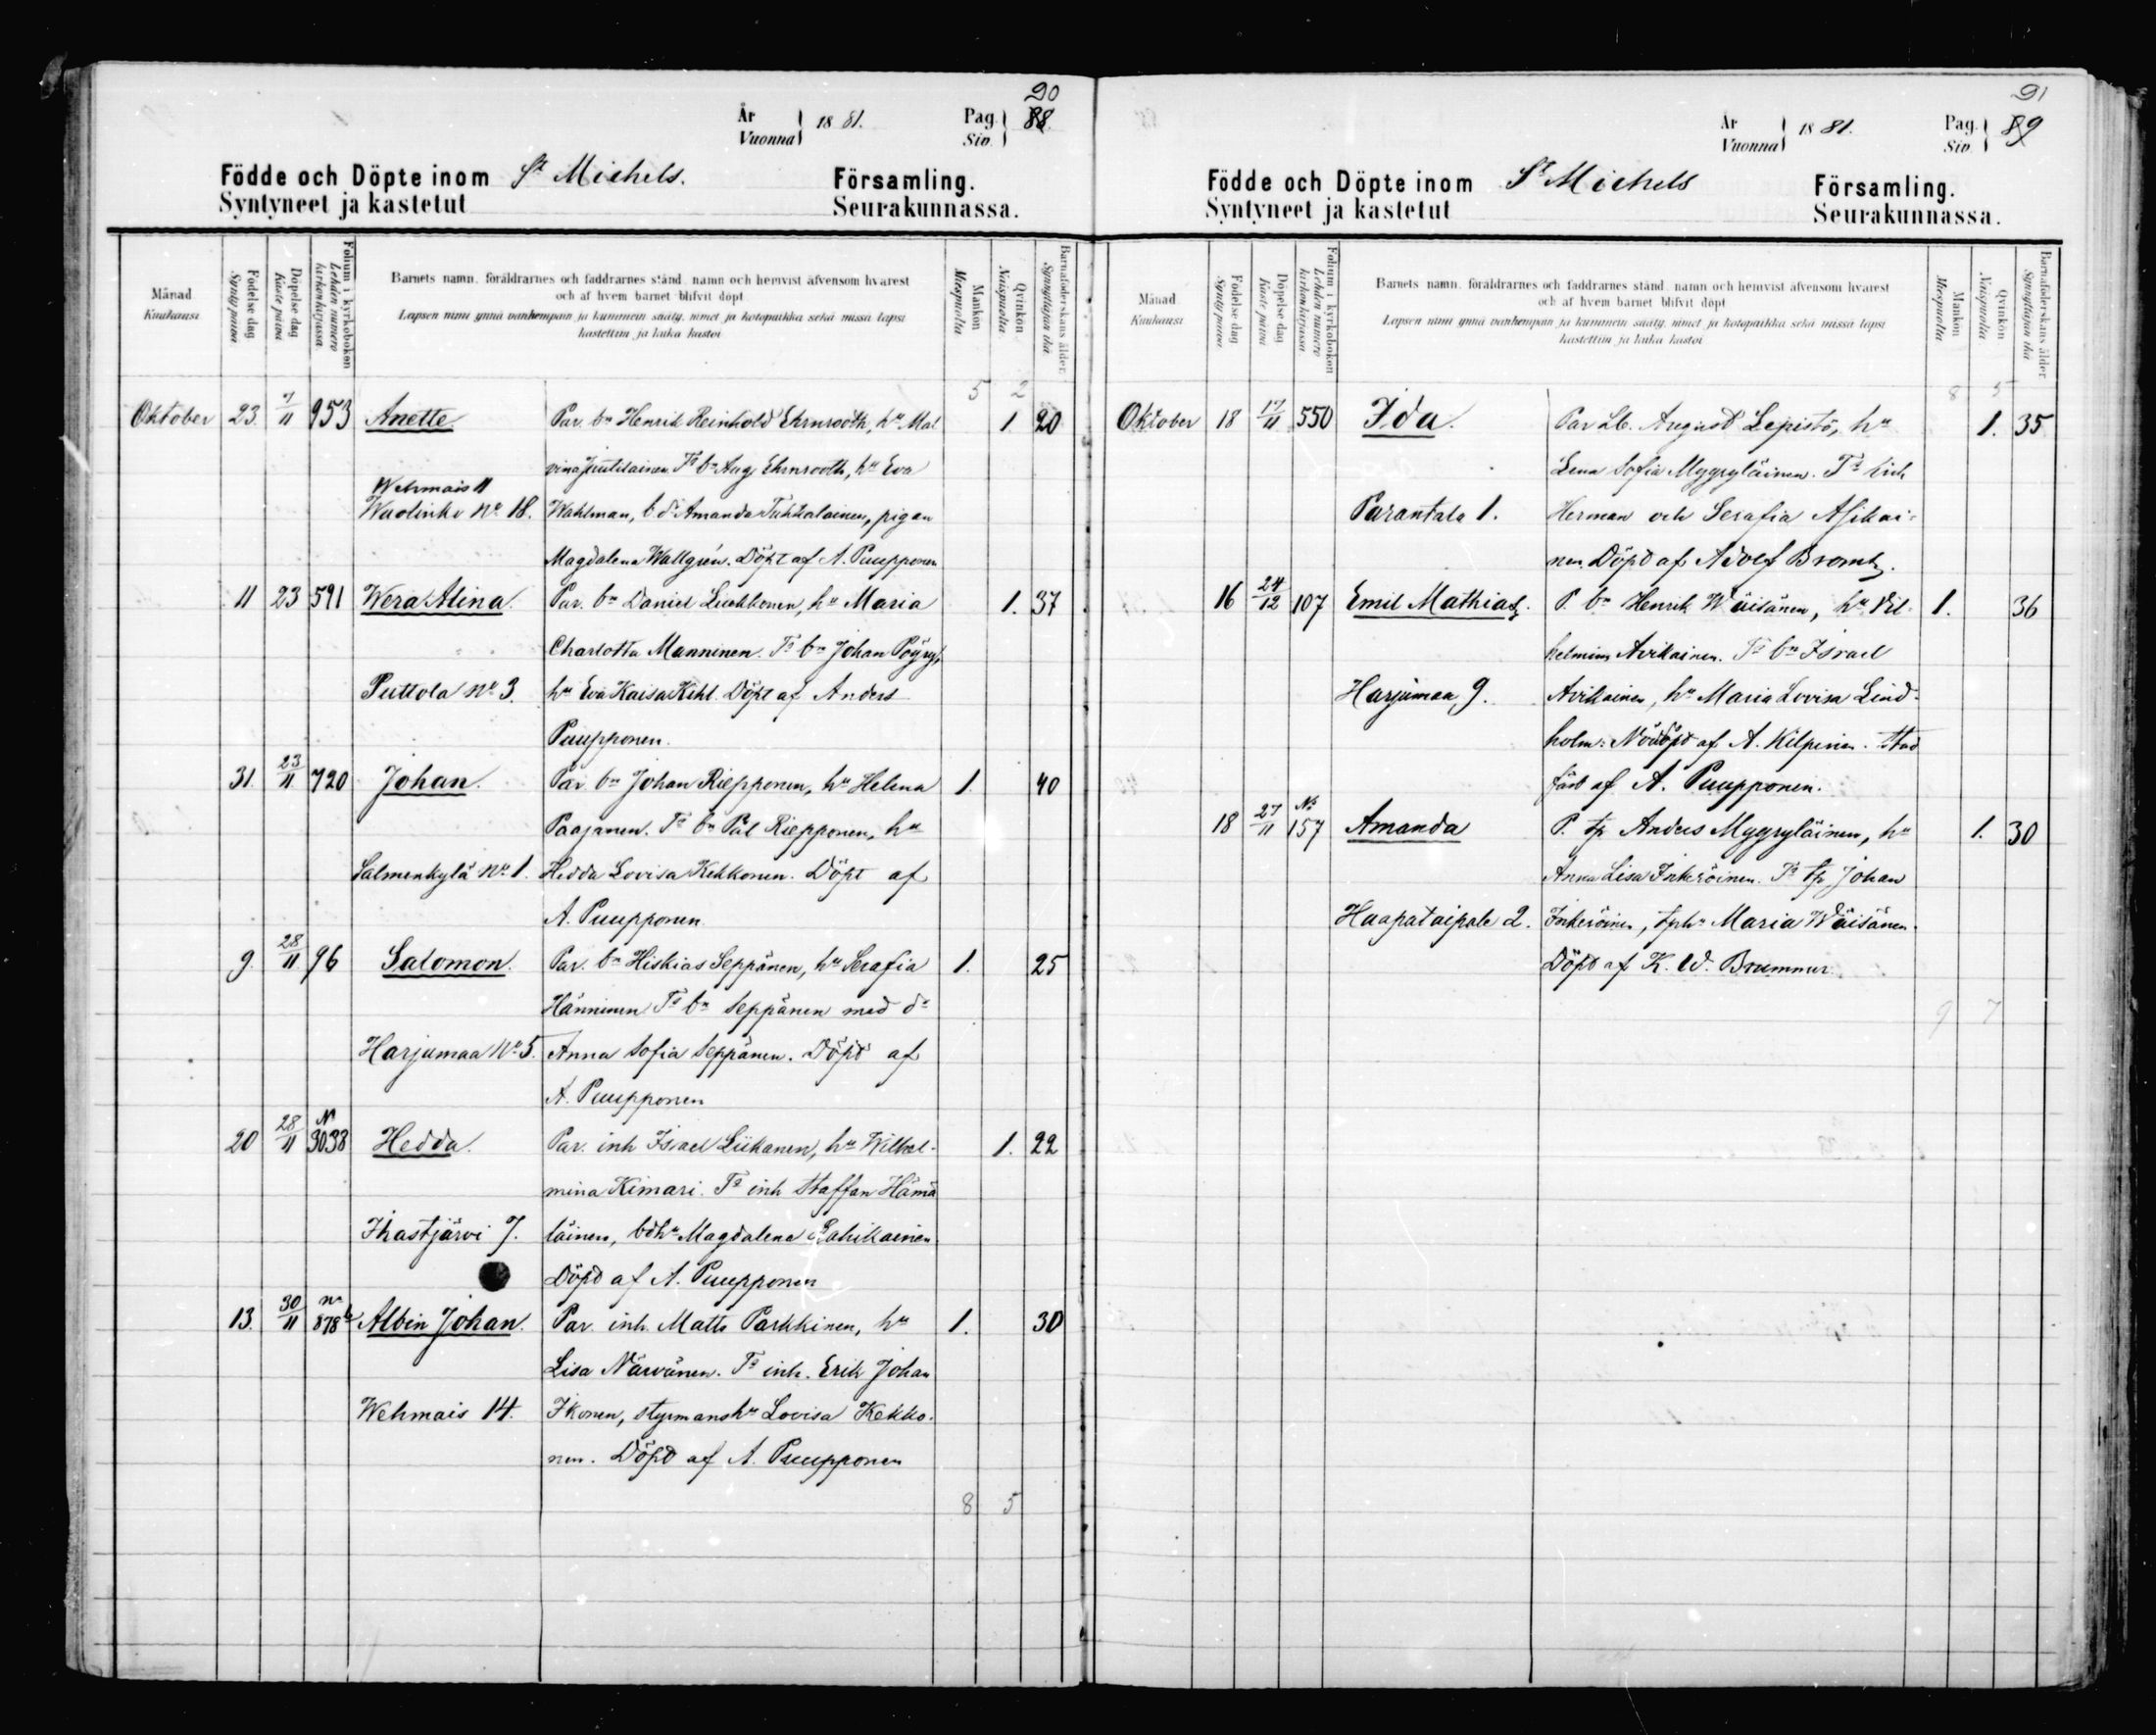 90
År
Vuonna
1881.
Pag.
Siv.
88.
Födde och Döpte inom St Michels. Församling.
Syntyneet ja kastetut Seurakunnassa.
Månad
Kuukausi
Födelse dag
Synty päivä
Döpelse dag
Kaste päivä
Folium i kyrkoboken
Lehden numero kirkonkirjassa
Barnets namn, föräldrarnes och faddrarnes stånd, namn och hemvist äfvensom hvarest
och af hvem barnet blifvit döpt
Lapsen nimi ynnä vanhempain ja kummein sääty, nimet ja kotopaikka sekä missä lapsi
kastettiin ja kuka kastoi
Mankön
Miespuolia
Qvinkön
Naispuolia
Barnaföderskans ålder
Synnyttäjän ikä
5 2
Oktober 23 7/11 953 Anette Par. bn Henrik Reinhold Ehrnrooth, hu Mal 1 20
vina Juutilainen Ts bn Aug Ehrnrooth, hu Eva
Wehmais 11
Wuolinko No 18. Wahlman, b dr Amanda Tukkalainen, pigan
Magdalena Wallgrén. Döpt af A. Puupponen
11 23 591 Wera Alina. Par. bn Daniel Luukkonen, hu Maria 1. 37
Charlotta Manninen. Ts bn Johan Pöyry,
Puttola No 3. hu Eva Kaisa Kihl. Döpt af Anders
Puupponen.
31. 23/11 720 Johan. Par. bn Johan Riepponen, hu Helena 1 40
Paajanen. Ts bn Pål Riepponen, hu
Salmenkylä No 1. Hedda Lovisa Kekkonen. Döpt af
A. Puupponen.
9. 28/11 96 Salomon. Par. bn Hiskias Seppänen, hu Serafia 1. 25
Hänninen Ts bn Seppänen med dr
Harjumaa No 5. Anna Sofia Seppänen. Döpt af
A. Puupponen
20 28/11 N 3038 Hedda. Par. inh Israel Liikanen, hu Wilhel- 1. 22
mina Kimari. Ts inh Staffan Hämä
Ihastjärvi 7. läinen, bdhu Magdalena Pahikainen.
Döpt af A. Puupponen
13. 30/11 no 878b Albin Johan. Par. inh. Matts Parkkinen, hu 1. 30
Lisa Närvänen. Ts inh. Erik Johan
Wehmais 14. Ikonen, styrmanshu Lovisa Kekko-
nen. Döpt af A. Puupponen
8 5
91
År
Vuonna
1881.
Pag.
Siv.
89
Födde och Döpte inom St Michels Församling.
Syntyneet ja kastetut Seurakunnassa.
Månad
Kuukausi
Födelse dag
Synty päivä
Döpelse dag
Kaste päivä
Folium i kyrkoboken
Lehden numero kirkonkirjassa
Barnets namn, föräldrarnes och faddrarnes stånd, namn och hemvist äfvensom hvarest
och af hvem barnet blifvit döpt
Lapsen nimi ynnä vanhempain ja kummein sääty, nimet ja kotopaikka sekä missä lapsi
kastettiin ja kuka kastoi
Mankön
Miespuolia
Qvinkön
Naispuolia
Barnaföderskans ålder
Synnyttäjän ikä
8 5
Oktober 18 17/11 550 Ida. Par Lb. August Lepistö, hu 1. 35
Lena Sofia Myyryläinen. Ts
Parantala 1. Herman och Serafia Asikai-
nen. Döpt af Adolf Bromb.
16 24/12 107 Emil Mathias. P. bn Henrik Wäisänen, hu Vil- 1. 36
helmina Avikainen. Ts bn Israel
Harjumaa 9. Avikainen, hu Maria Lovisa Lind-
holm. Nöddöpt af A. Kilpinen. Stad
fäst af A. Puupponen.
18 27/11 No 157 Amanda P. tp Anders Myyryläinen, hu 1. 30
Anna Lisa Inkeröinen. Ts tp Johan
Haapataipale 2. Inkeröinen, tphu Maria Wäisänen.
Döpt af K. W. Brummer.
9 7